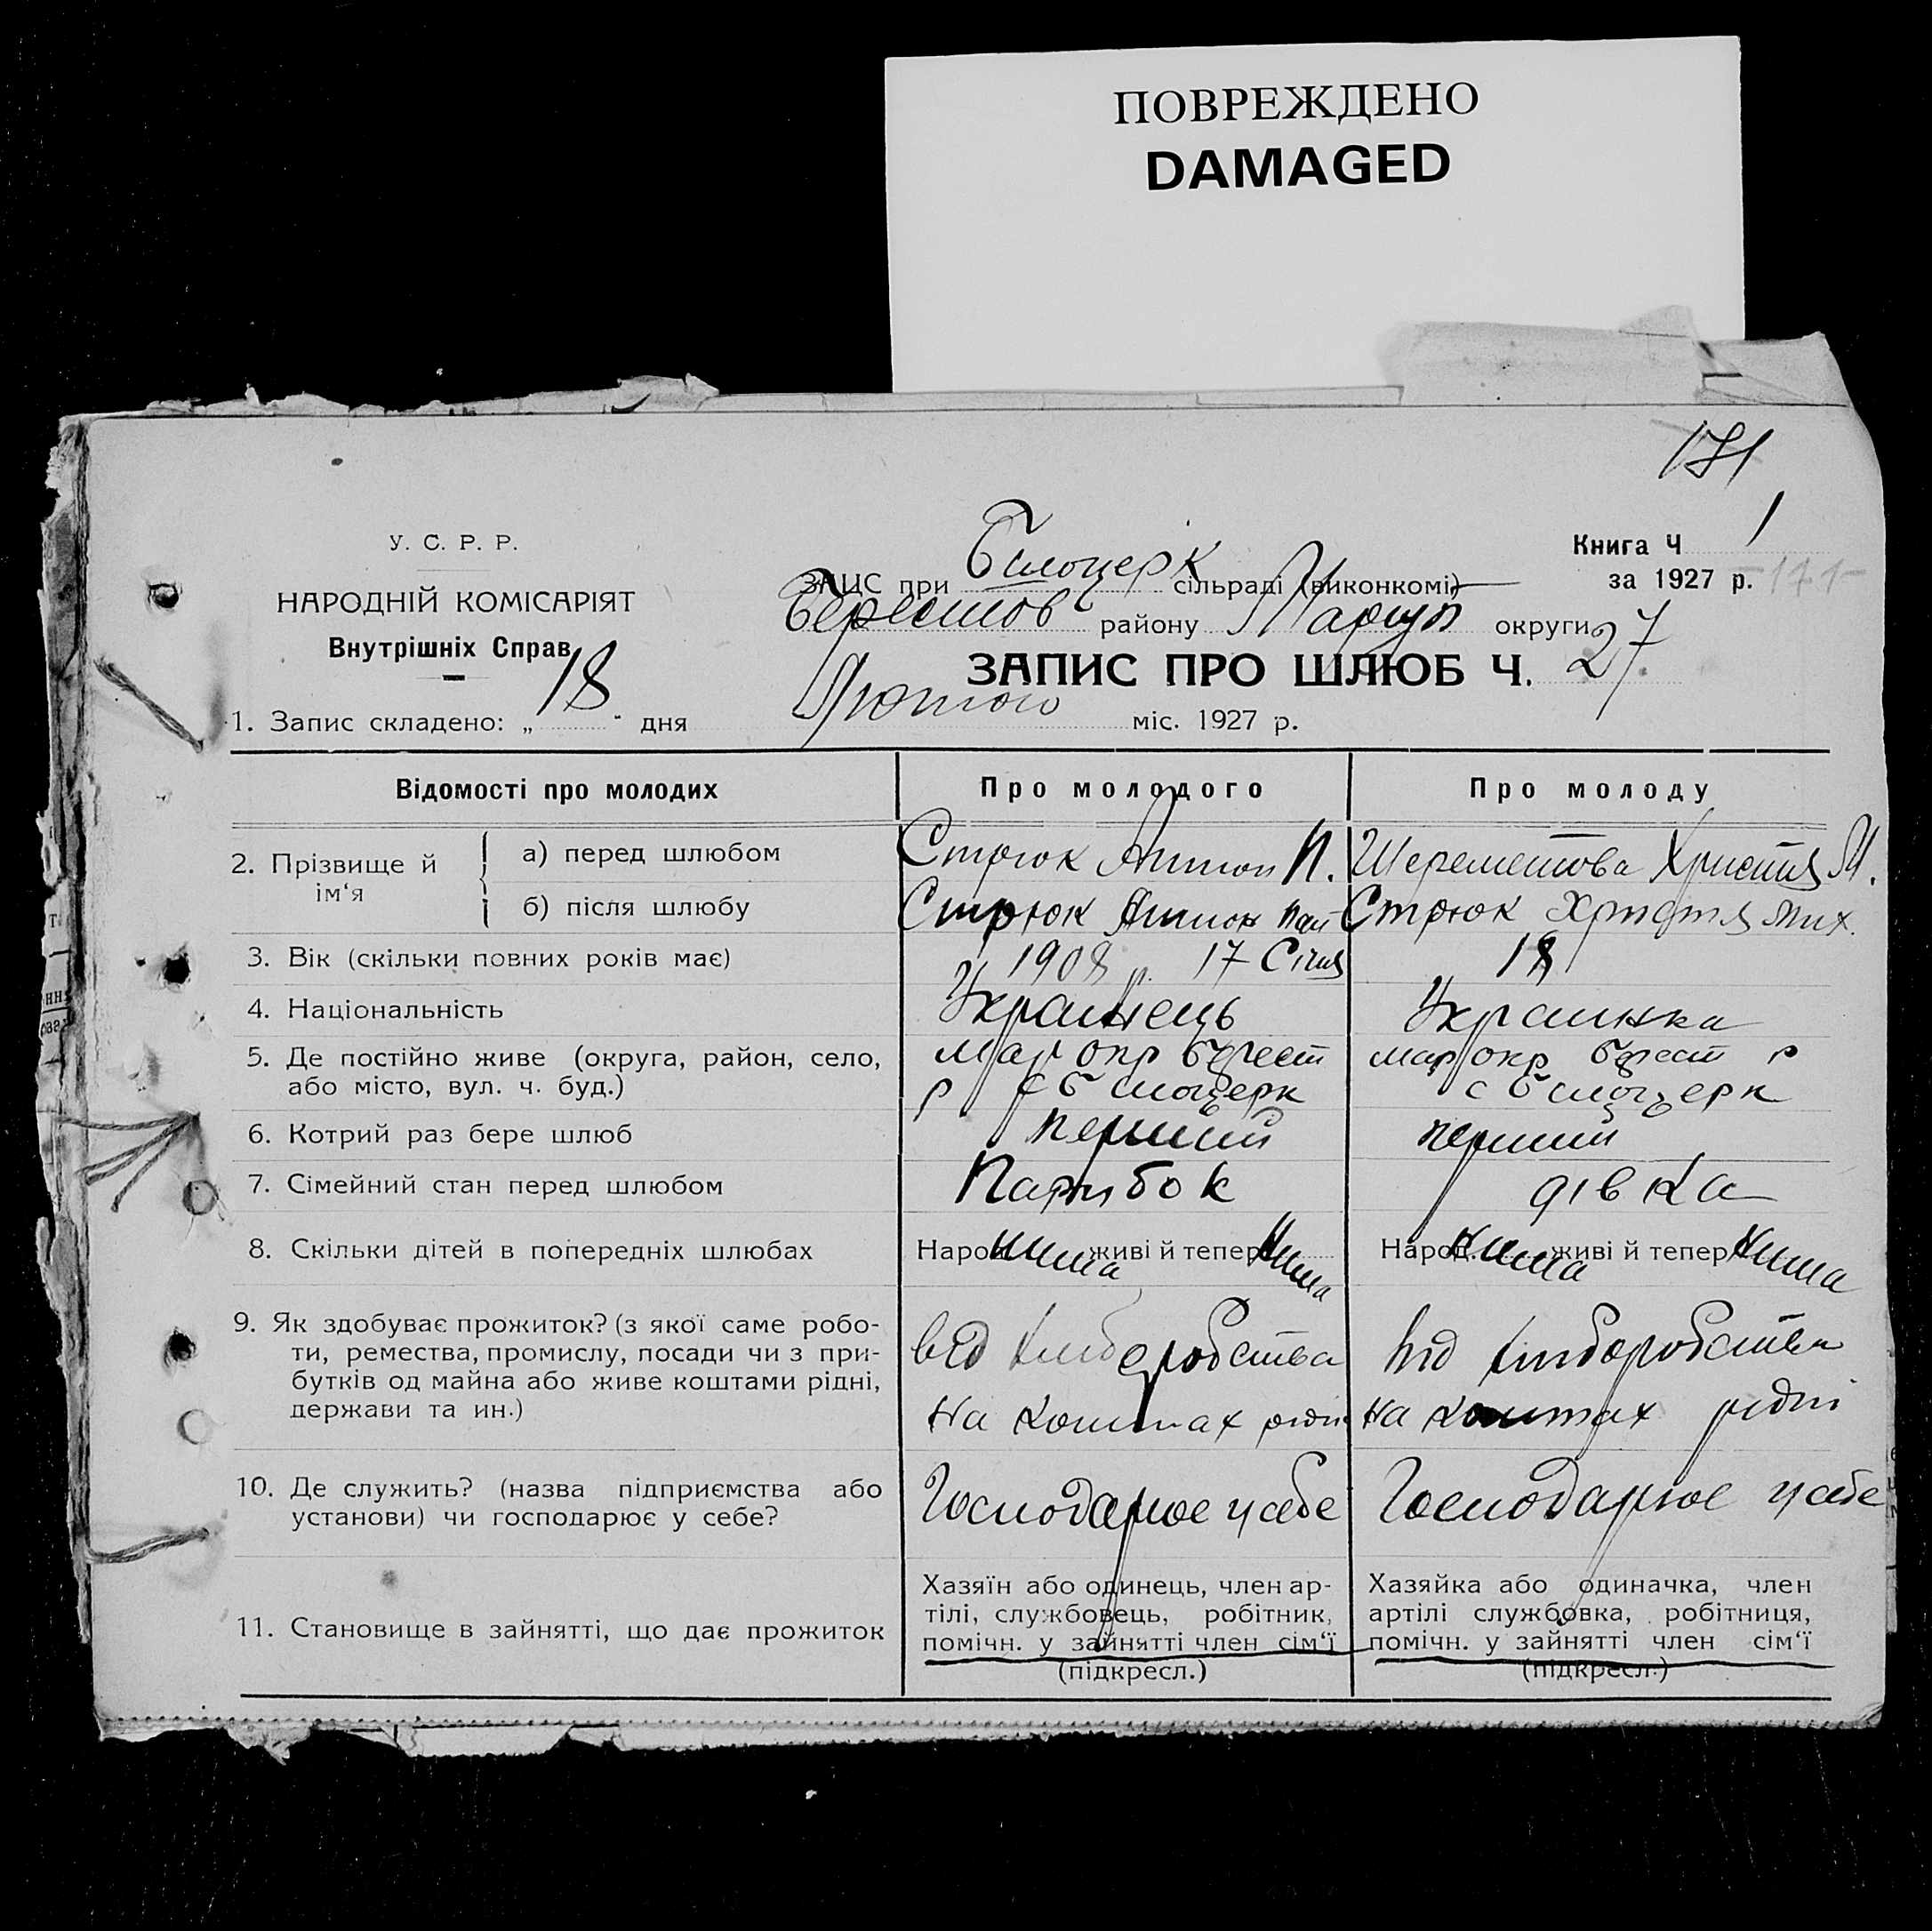 ПОВРЕЖДЕНО
DAMAGED
171
У. С. Р. Р.
НАРОДНІЙ КОМІСАРІЯТ
Внутрішніх Справ
Книга Ч 1
за 1927 р. -171-
ЗАЦС при Білоцерк сільраді (виконкомі)
Берестов району Маріуп округи
ЗАПИС ПРО ШЛЮБ Ч. 27
1. Запис складено: „ 18 " дня Лютого міс. 1927 р.
Відомості про молодих Про молодого Про молоду
2. Прізвище й ім‘я
а) перед шлюбом Стрюк Антон П. Шереметова Христя М.
б) після шлюбу Стрюк Антон Стрюк Христя Мих.
3. Вік (скільки повних років має) 1908 р. 17 Січня 18
4. Національність Украінець Украинка
5. Де постійно живе (округа, район, село, мар окр берест мар окр берест р
або місто, вул. ч. буд.) р с Білоцерк с Білоцерк
6. Котрий раз бере шлюб перший перший
7. Сімейний стан перед шлюбом Парубок дівка
8. Скільки дітей в попередніх шлюбах Народ. нима живі й тепер нима Народ. нима живі й тепер нима
9. Як здобуває прожиток? (з якої саме робо-
ти, ремества, промислу, посади чи з при- від хліборобства від хліборобства
бутків од майна або живе коштами рідні,
держави та ин.) на коштах рідні на коштах рідні
10. Де служить? (назва підприємства або
установи) чи господарює у себе? Господарює у себе Господарює у себе
11. Становище в зайнятті, що дає прожиток
Хазяїн або одинець, член ар-
тілі, службовець, робітник,
помічн. у зайнятті член сім‘ї
(підкресл.)
Хазяйка або одиначка, член
артілі службовка, робітниця,
помічн. у зайнятті член сім‘ї
(підкресл.)